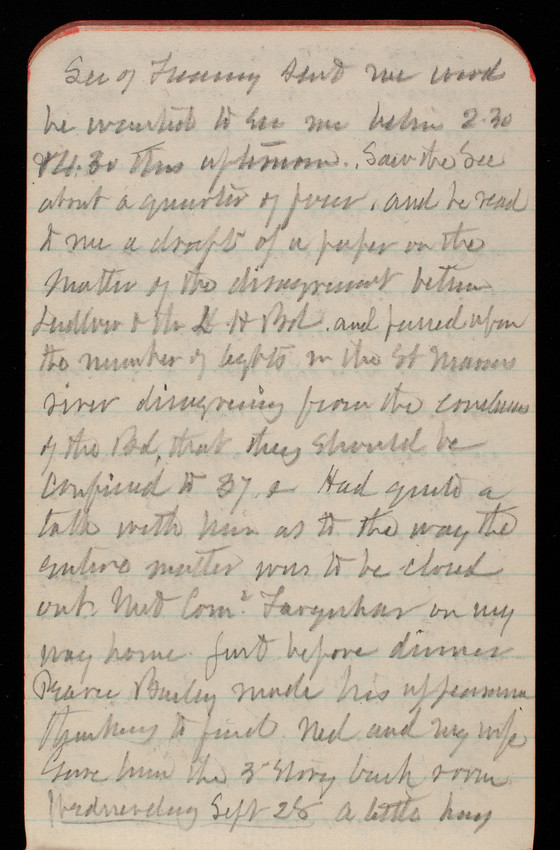 Sec of Treasury sent me word
he wanted to see me between 2.30
& 4.30 this afternoon. Saw the Sec
about a quarter of four, and he read
to me a draft of a paper on the
matter of the disagreement between
Ludlow & the L H Bd. and passed upon
the number of lights in the St Marys
river disagreeing from the conclusions
of the Bd, that they should be
confined to 37. Had quite a
talk with him as to the way the
entire matter was to be closed
out. Met Comr. Farquhar on my
way home. Just before dinner
Pearce Bailey made his appearance
thinking to find Ned and my wife
gave him the 3d story back room
Wednesday Sept 28 a little hazy